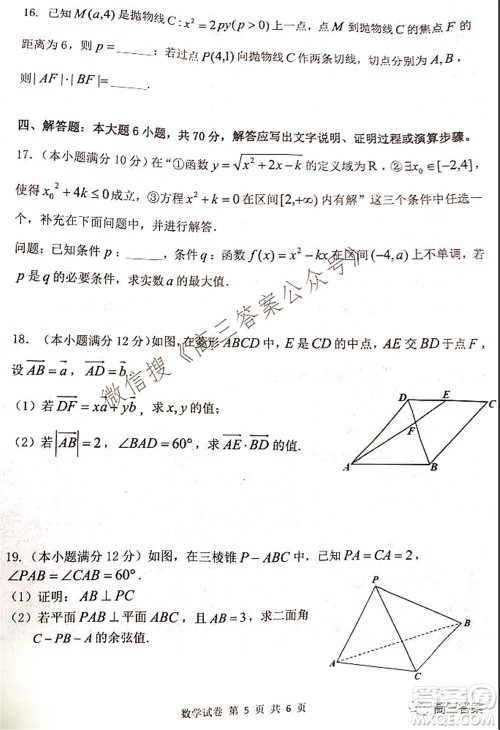 16. 已知M(a,4)是抛物线C:x²=2py(p>0)上一点，点M到抛物线C的焦点F的
距离为6，则p=_____；若过点P(4,1)向抛物线C作两条切线，切点分别为A,B，
则|AF|·|BF|=_____.
四、解答题：本大题6小题，共70分，解答应写出文字说明、证明过程或演算步骤。
17.（本小题满分10分）在“①函数y=√(x²+2x-k)的定义域为R，②∃x₀∈[-2,4]，
使得x₀²+4k≤0成立，③方程x²+k=0在区间[2,+∞)内有解”这三个条件中任选一
个，补充在下面问题中，并进行解答.
问题：已知条件p：_____，条件q：函数f(x)=x²-kx在区间(-4,a)上不单调，若
p是q的必要条件，求实数a的最大值.
18.（本小题满分12分）如图，在菱形ABCD中，E是CD的中点，AE交BD于点F，
设AB=a，AD=b.
(1) 若DF=xa+yb，求x,y的值；
(2) 若|AB|=2，∠BAD=60°，求AE·BD的值.
D
E
C
F
A
B
19.（本小题满分12分）如图，在三棱锥P-ABC中，已知PA=CA=2，
∠PAB=∠CAB=60°.
(1) 证明：AB⊥PC
(2) 若平面PAB⊥平面ABC，且AB=3，求二面角
C-PB-A的余弦值.
P
B
A
C
数学试卷 第5页 共6页
微信搜《高三答案公众号》
高三答案